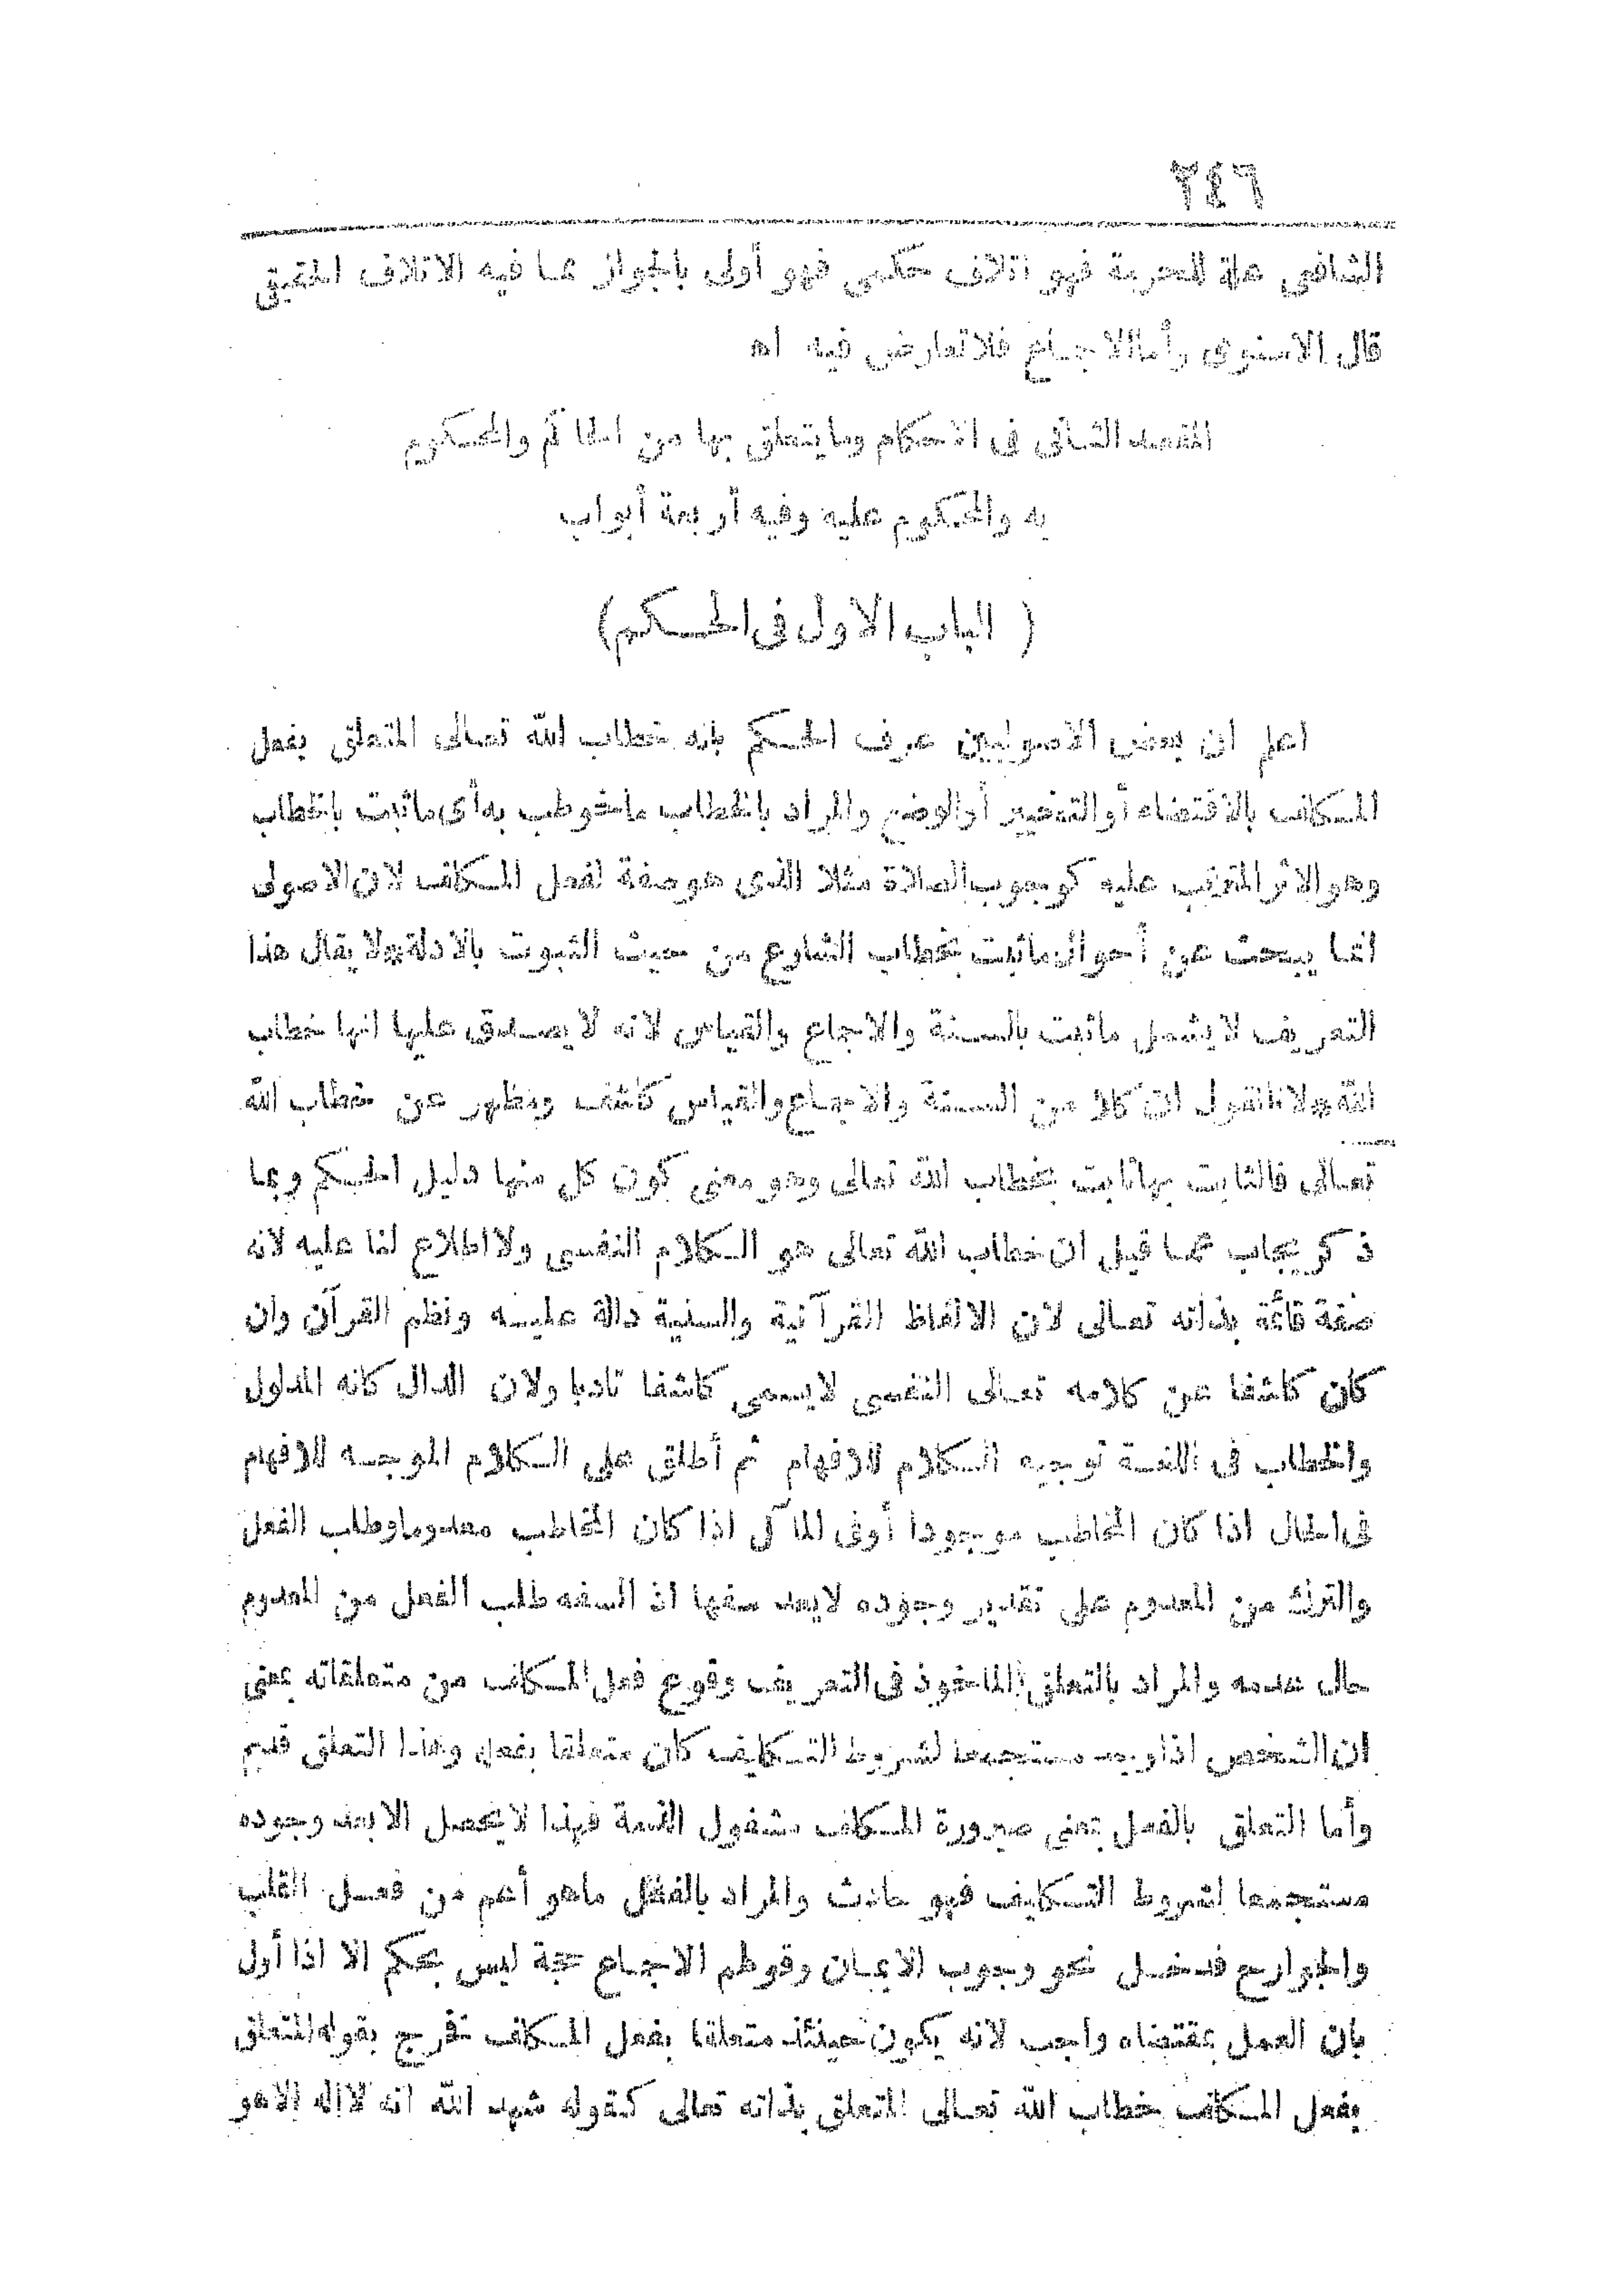 ٢٤٦
الشافعى علة للحرمة فهو اتلاف حكمى فهو أولى بالجواز مما فيه الاتلاف الحقيقى
قال الاسنوى وأما الاجماع فلا تعارض فيه اه
المقصد الثانى فى الاحكام وما يتعلق بها من الحاكم والمحكوم
به والمحكوم عليه وفيه أربعة أبواب
( الباب الاول فى الحكم)
اعلم ان بعض الاصوليين عرف الحكم بانه خطاب الله تعالى المتعلق بفعل
المكلف بالاقتضاء أو التخيير أو الوضع والمراد بالخطاب ما خوطب به أى ما ثبت بالخطاب
وهو الاثر المترتب عليه كوجوب الصلاة مثلا الذى هو صفة لفعل المكلف لان الاصولى
انما يبحث عن أحوال ما ثبت بخطاب الشارع من حيث الثبوت بالادلة * لا يقال هذا
التعريف لا يشمل ما ثبت بالسنة والاجماع والقياس لانه لا يصدق عليها انها خطاب
الله * لانا نقول ان كلا من السنة والاجماع والقياس كاشف ومظهر عن خطاب الله
تعالى فالثابت بها ثابت بخطاب الله تعالى وهو معنى كون كل منها دليل الحكم وبما
ذكر يجاب عما قيل ان خطاب الله تعالى هو الكلام النفسى ولا اطلاع لنا عليه لانه
صفة قائمة بذاته تعالى لان الالفاظ القرآنية والسنية دالة عليه ونظم القرآن وان
كان كاشفا عن كلامه تعالى النفسى لا يسمى كاشفا تادبا ولان الدال كانه المدلول
والخطاب فى اللغة توجيه الكلام للافهام ثم أطلق على الكلام الموجه للافهام
فى الحال اذا كان المخاطب موجودا أو فى المآل اذا كان المخاطب معدوما وطلب الفعل
والترك من المعدوم على تقدير وجوده لا يعد سفها اذ السفه طلب الفعل من المعدوم
حال عدمه والمراد بالتعلق المأخوذ فى التعريف وقوع فعل المكلف من متعلقاته بمعنى
ان الشخص اذا وجد مستجمعا لشروط التكليف كان متعلقا بفعله وهذا التعلق قديم
وأما التعلق بالفعل بمعنى صيرورة المكلف مشغول الذمة فهذا لا يحصل الا بعد وجوده
مستجمعا لشروط التكليف فهو حادث والمراد بالفعل ما هو أعم من فعل القلب
والجوارح فدخل نحو وجوب الايمان وقولهم الاجماع حجة ليس بحكم الا اذا أول
بان العمل بمقتضاه واجب لانه يكون حينئذ متعلقا بفعل المكلف فخرج بقوله المتعلق
بفعل المكلف خطاب الله تعالى المتعلق بذاته تعالى كقوله شهد الله انه لا اله الا هو